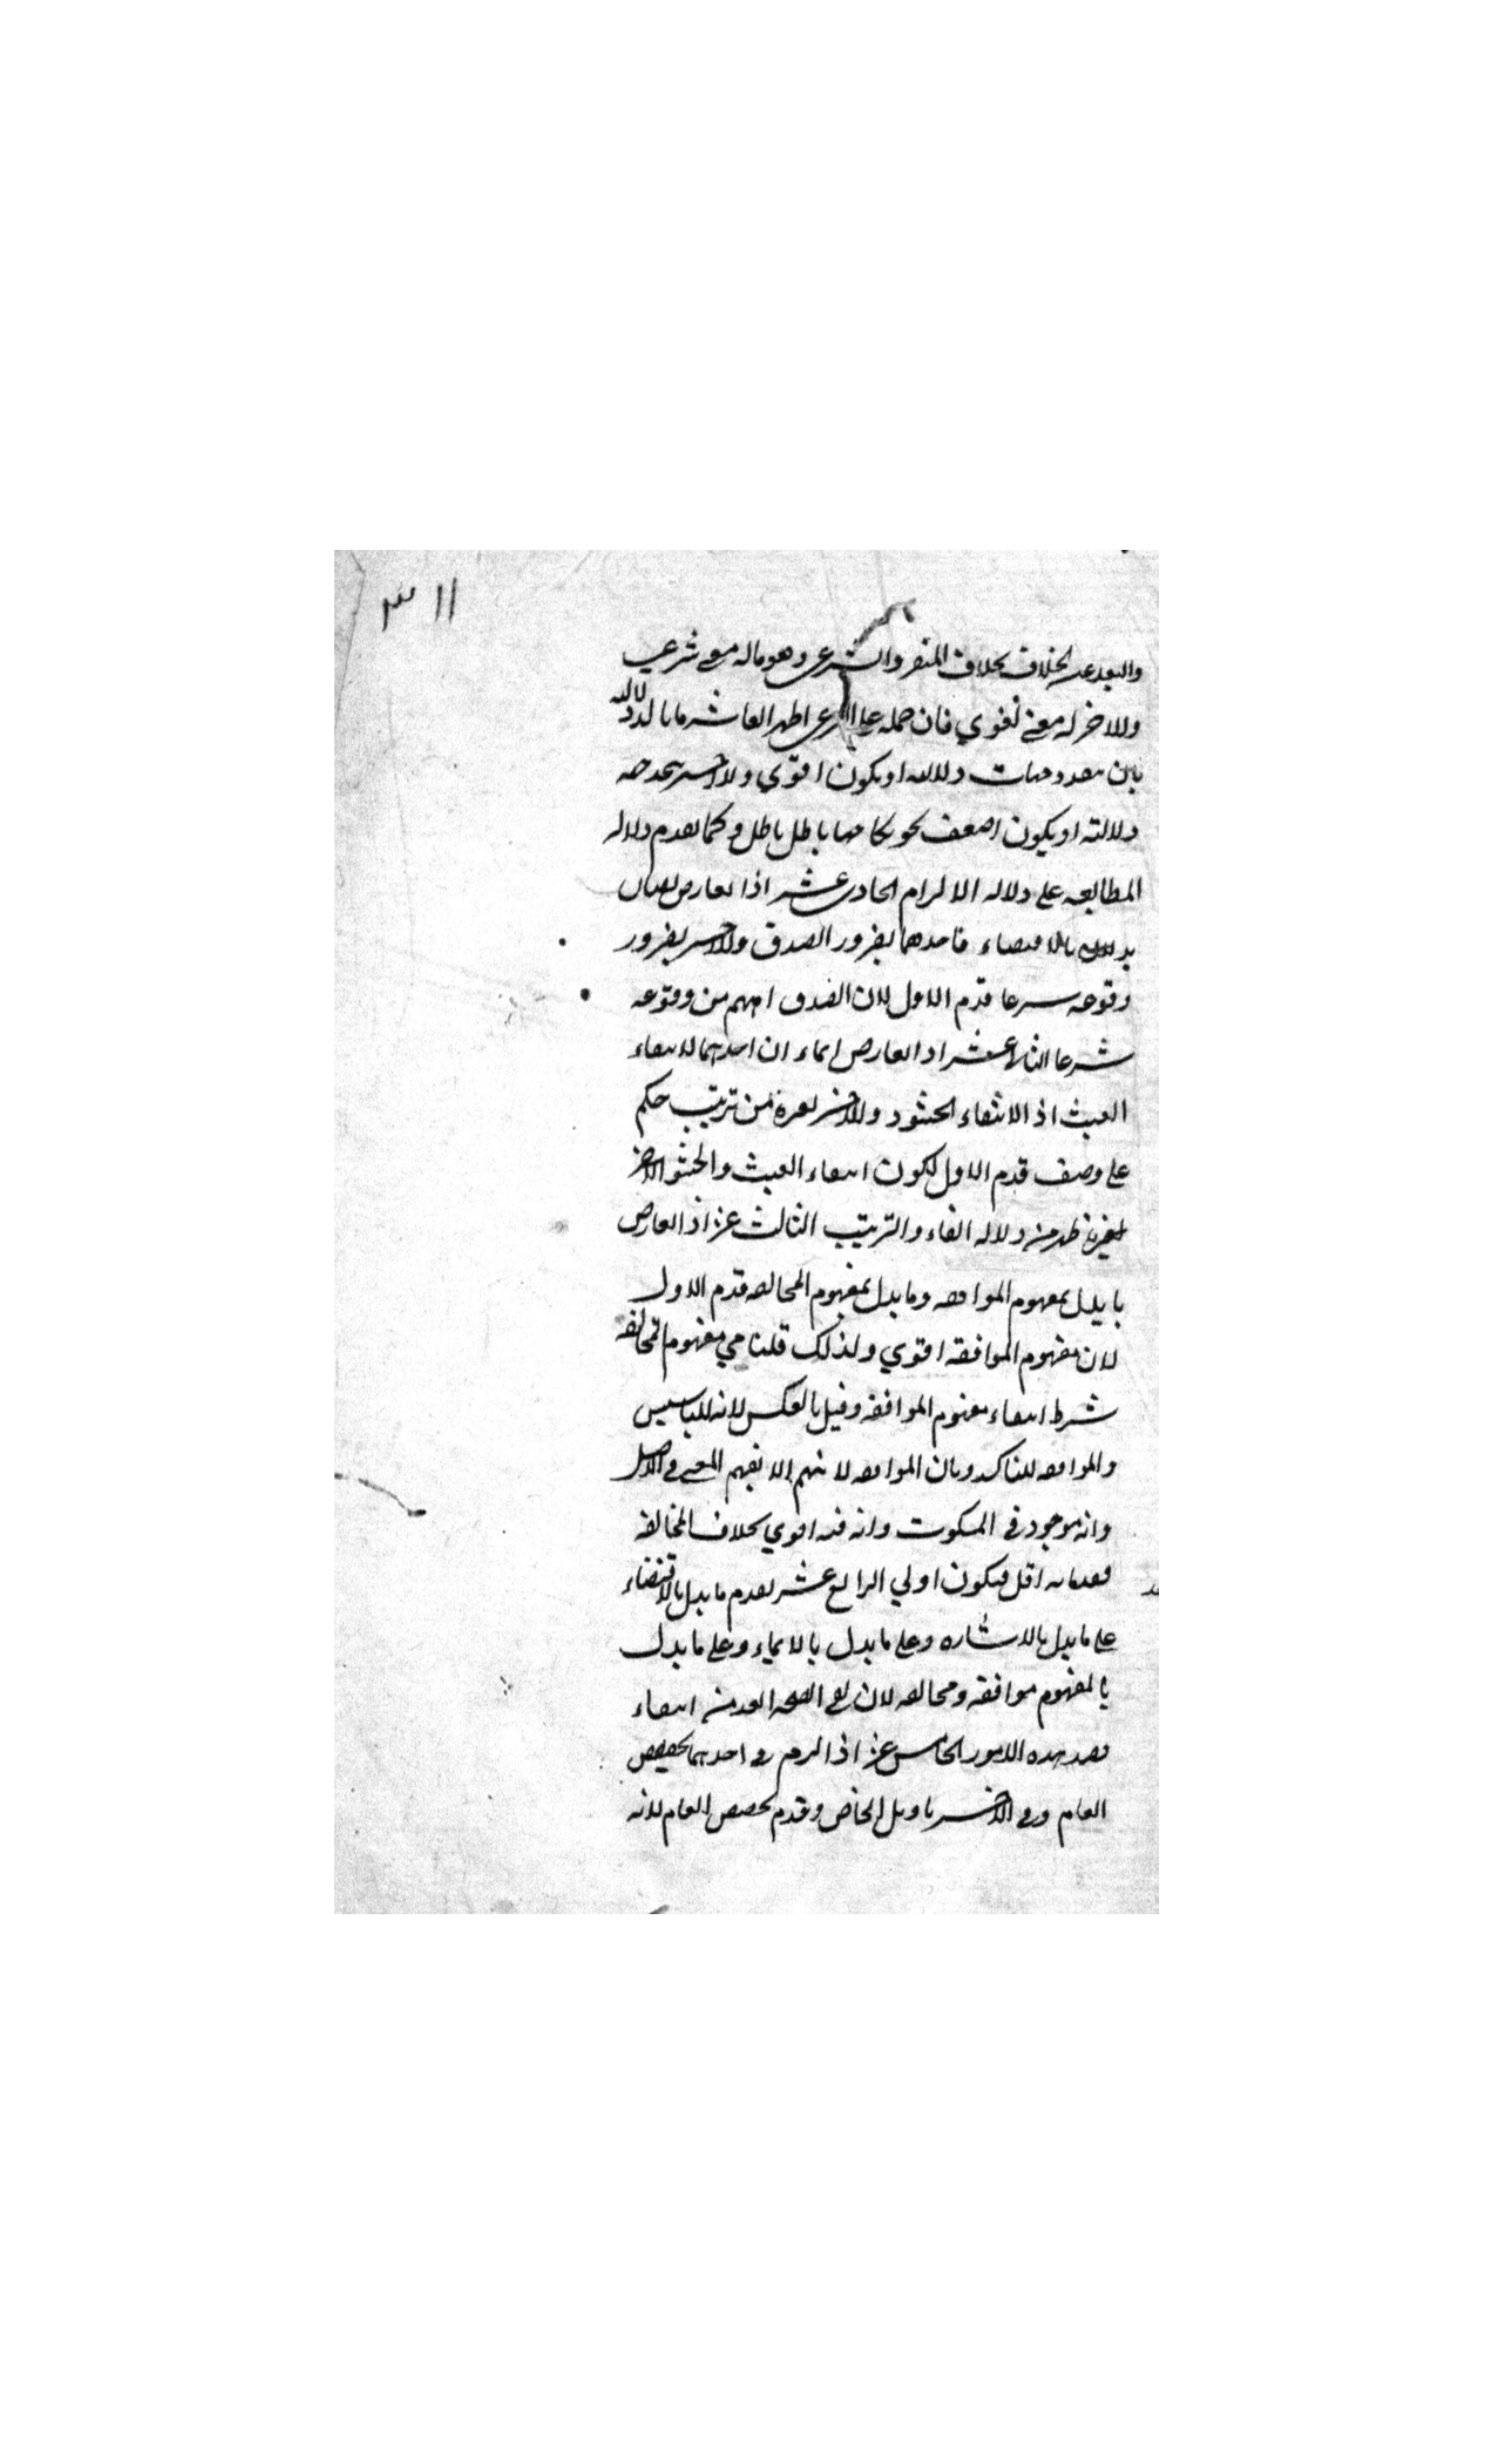 ٣١١
والبعد عن الخلاف بخلاف المنفر والشرعي وهو ماله معنى شرعي
وللاخر له معنى لغوي فان حمله على الشرعي اظهر العاشر ما تاكد دلالته
بان تعدد جهات دلالته او يكون اقوي والاخر متحد جهه
دلالته او يكون اضعف نحو نكاحها باطل باطل وكما تقدم دلاله
المطابقه على دلاله الالتزام الحادي عشر اذا تعارض نصان
يدلان بالاقتضاء فاحدهما لضرور الصدق والاخر لضرور
وقوعه شرعا قدم الاول لان الصدق اهم من وقوعه
شرعا الثاني عشر اذا تعارض ايماء ان احدهما لانتفاء
العبث اذ الانتفاء الحشو د والاخر لغيره من ترتيب حكم
على وصف قدم الاول لكون انتفاء العبث والحشو
من دلاله الفاء والترتيب الثالث عشر اذا تعارض
ما يدل بمفهوم الموافقه وما يدل بمفهوم المخالفه قدم الاول
لان مفهوم الموافقه اقوي ولذلك قلنا في مفهوم المخالفه
شرط انتفاء مفهوم الموافقه وقيل بالعكس لانه للتاسيس
والموافقه للتاكيد وبان الموافقه لا تفهم الا بفهم المعنى في الاصل
وانه موجود في المسكوت وانه فيه اقوي بخلاف المخالفه
فمقدماته اقل فيكون اولي الرابع عشر يقدم ما يدل بالاقتضاء
على ما يدل بالاشاره وعلى ما يدل بالايماء وعلى ما يدل
بالمفهوم موافقه ومخالفه لان نفي الصحه ابعد من انتفاء
قصد هذه الامور الخامس عشر اذا لزم في احدهما تخصيص
العام وفي الاخر تاويل الخاص وقدم تخصيص العام لانه